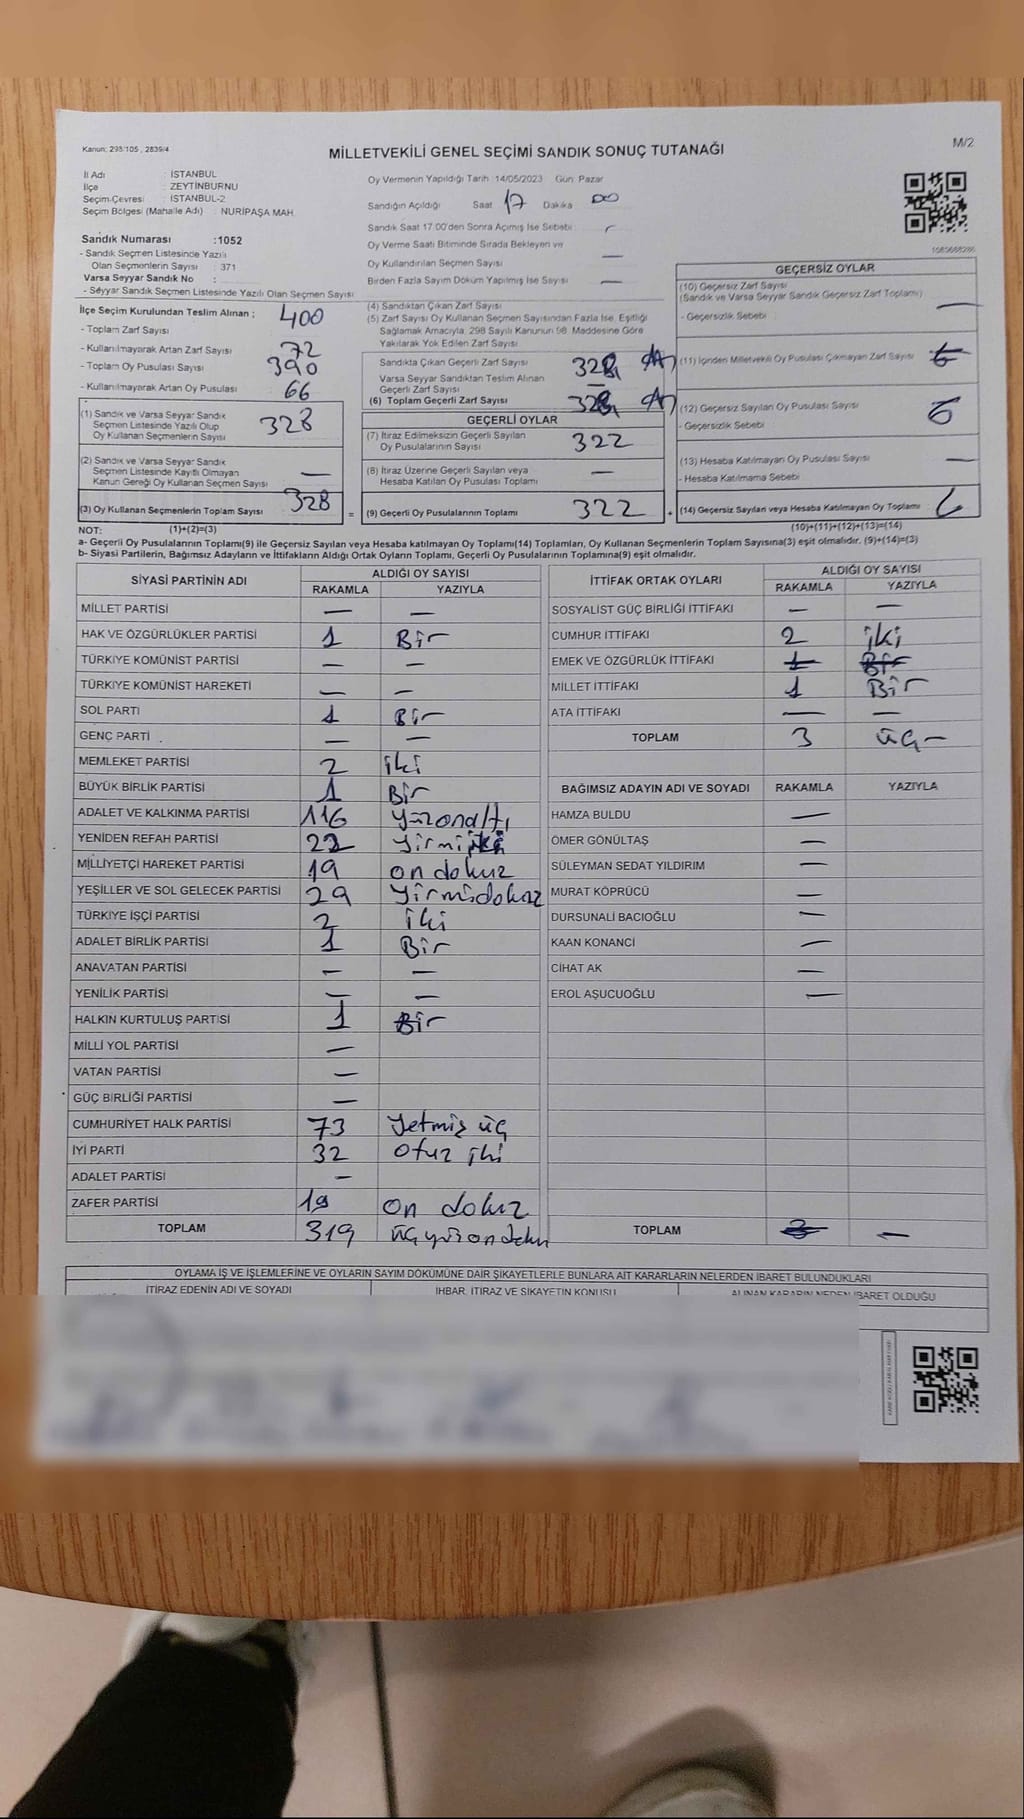 Kanun: 298/105 , 2839/4
MİLLETVEKİLİ GENEL SEÇİMİ SANDIK SONUÇ TUTANAĞI
M/2
İl Adı : İSTANBUL
İlçe : ZEYTİNBURNU
Seçim Çevresi : İSTANBUL-2
Seçim Bölgesi (Mahalle Adı) : NURİPAŞA MAH.
Sandık Numarası :1052
- Sandık Seçmen Listesinde Yazılı
Olan Seçmenlerin Sayısı : 371
Varsa Seyyar Sandık No :
- Seyyar Sandık Seçmen Listesinde Yazılı Olan Seçmen Sayısı
Oy Vermenin Yapıldığı Tarih :14/05/2023 Gün: Pazar
Sandığın Açıldığı Saat 17 Dakika 00
Sandık Saat 17.00'den Sonra Açımış İse Sebebi
Oy Verme Saati Bitiminde Sırada Bekleyen ve
Oy Kullandırılan Seçmen Sayısı —
Birden Fazla Sayım Döküm Yapılmış İse Sayısı —
İlçe Seçim Kurulundan Teslim Alınan ; 400
- Toplam Zarf Sayısı
- Kullanılmayarak Artan Zarf Sayısı 72
- Toplam Oy Pusulası Sayısı 390
- Kullanılmayarak Artan Oy Pusulası 66
(1) Sandık ve Varsa Seyyar Sandık
Seçmen Listesinde Yazılı Olup
Oy Kullanan Seçmenlerin Sayısı 328
(2) Sandık ve Varsa Seyyar Sandık
Seçmen Listesinde Kayıtlı Olmayan
Kanun Gereği Oy Kullanan Seçmen Sayısı —
(3) Oy Kullanan Seçmenlerin Toplam Sayısı 328 =
(4) Sandıktan Çıkan Zarf Sayısı
(5) Zarf Sayısı Oy Kullanan Seçmen Sayısından Fazla İse, Eşitliği
Sağlamak Amacıyla, 298 Sayılı Kanunun 98. Maddesine Göre
Yakılarak Yok Edilen Zarf Sayısı
Sandıkta Çıkan Geçerli Zarf Sayısı 328
Varsa Seyyar Sandıktan Teslim Alınan
Geçerli Zarf Sayısı —
(6) Toplam Geçerli Zarf Sayısı 328
GEÇERLİ OYLAR
(7) İtiraz Edilmeksizin Geçerli Sayılan
Oy Pusulalarının Sayısı 322
(8) İtiraz Üzerine Geçerli Sayılan veya
Hesaba Katılan Oy Pusulası Toplamı —
(9) Geçerli Oy Pusulalarının Toplamı 322 +
1085668286
GEÇERSİZ OYLAR
(10) Geçersiz Zarf Sayısı
(Sandık ve Varsa Seyyar Sandık Geçersiz Zarf Toplamı) —
- Geçersizlik Sebebi
(11) İçinden Milletvekili Oy Pusulası Çıkmayan Zarf Sayısı
(12) Geçersiz Sayılan Oy Pusulası Sayısı 6
- Geçersizlik Sebebi
(13) Hesaba Katılmayan Oy Pusulası Sayısı —
- Hesaba Katılmama Sebebi
(14) Geçersiz Sayılan veya Hesaba Katılmayan Oy Toplamı 6
NOT: (1)+(2)=(3)
(10)+(11)+(12)+(13)=(14)
a- Geçerli Oy Pusulalarının Toplamı(9) ile Geçersiz Sayılan veya Hesaba katılmayan Oy Toplamı(14) Toplamları, Oy Kullanan Seçmenlerin Toplam Sayısına(3) eşit olmalıdır. (9)+(14)=(3)
b- Siyasi Partilerin, Bağımsız Adayların ve İttifakların Aldığı Ortak Oyların Toplamı, Geçerli Oy Pusulalarının Toplamına(9) eşit olmalıdır.
SİYASİ PARTİNİN ADI ALDIĞI OY SAYISI
RAKAMLA YAZIYLA
MİLLET PARTİSİ — —
HAK VE ÖZGÜRLÜKLER PARTİSİ 1 Bir
TÜRKİYE KOMÜNİST PARTİSİ — —
TÜRKİYE KOMÜNİST HAREKETİ — —
SOL PARTİ 1 Bir
GENÇ PARTİ — —
MEMLEKET PARTİSİ 2 iki
BÜYÜK BİRLİK PARTİSİ 1 Bir
ADALET VE KALKINMA PARTİSİ 116 Yüzonaltı
YENİDEN REFAH PARTİSİ 22 Yirmi iki
MİLLİYETÇİ HAREKET PARTİSİ 19 on dokuz
YEŞİLLER VE SOL GELECEK PARTİSİ 29 Yirmidokuz
TÜRKİYE İŞÇİ PARTİSİ 2 iki
ADALET BİRLİK PARTİSİ 1 Bir
ANAVATAN PARTİSİ — —
YENİLİK PARTİSİ — —
HALKIN KURTULUŞ PARTİSİ 1 Bir
MİLLİ YOL PARTİSİ —
VATAN PARTİSİ —
GÜÇ BİRLİĞİ PARTİSİ —
CUMHURİYET HALK PARTİSİ 73 Yetmiş üç
İYİ PARTİ 32 Otuz iki
ADALET PARTİSİ —
ZAFER PARTİSİ 19 on dokuz
TOPLAM 319 üçyüzondokuz
İTTİFAK ORTAK OYLARI ALDIĞI OY SAYISI
RAKAMLA YAZIYLA
SOSYALİST GÜÇ BİRLİĞİ İTTİFAKI — —
CUMHUR İTTİFAKI 2 iki
EMEK VE ÖZGÜRLÜK İTTİFAKI 1 Bir
MİLLET İTTİFAKI 1 Bir
ATA İTTİFAKI — —
TOPLAM 3 üç —
BAĞIMSIZ ADAYIN ADI VE SOYADI RAKAMLA YAZIYLA
HAMZA BULDU —
ÖMER GÖNÜLTAŞ —
SÜLEYMAN SEDAT YILDIRIM —
MURAT KÖPRÜCÜ —
DURSUNALİ BACIOĞLU —
KAAN KONANCİ —
CİHAT AK —
EROL AŞUCUOĞLU —
TOPLAM 3 —
OYLAMA İŞ VE İŞLEMLERİNE VE OYLARIN SAYIM DÖKÜMÜNE DAİR ŞİKAYETLERLE BUNLARA AİT KARARLARIN NELERDEN İBARET BULUNDUKLARI
İTİRAZ EDENİN ADI VE SOYADI İHBAR, İTİRAZ VE ŞİKAYETİN KONUSU ALINAN KARARIN NEDEN İBARET OLDUĞU